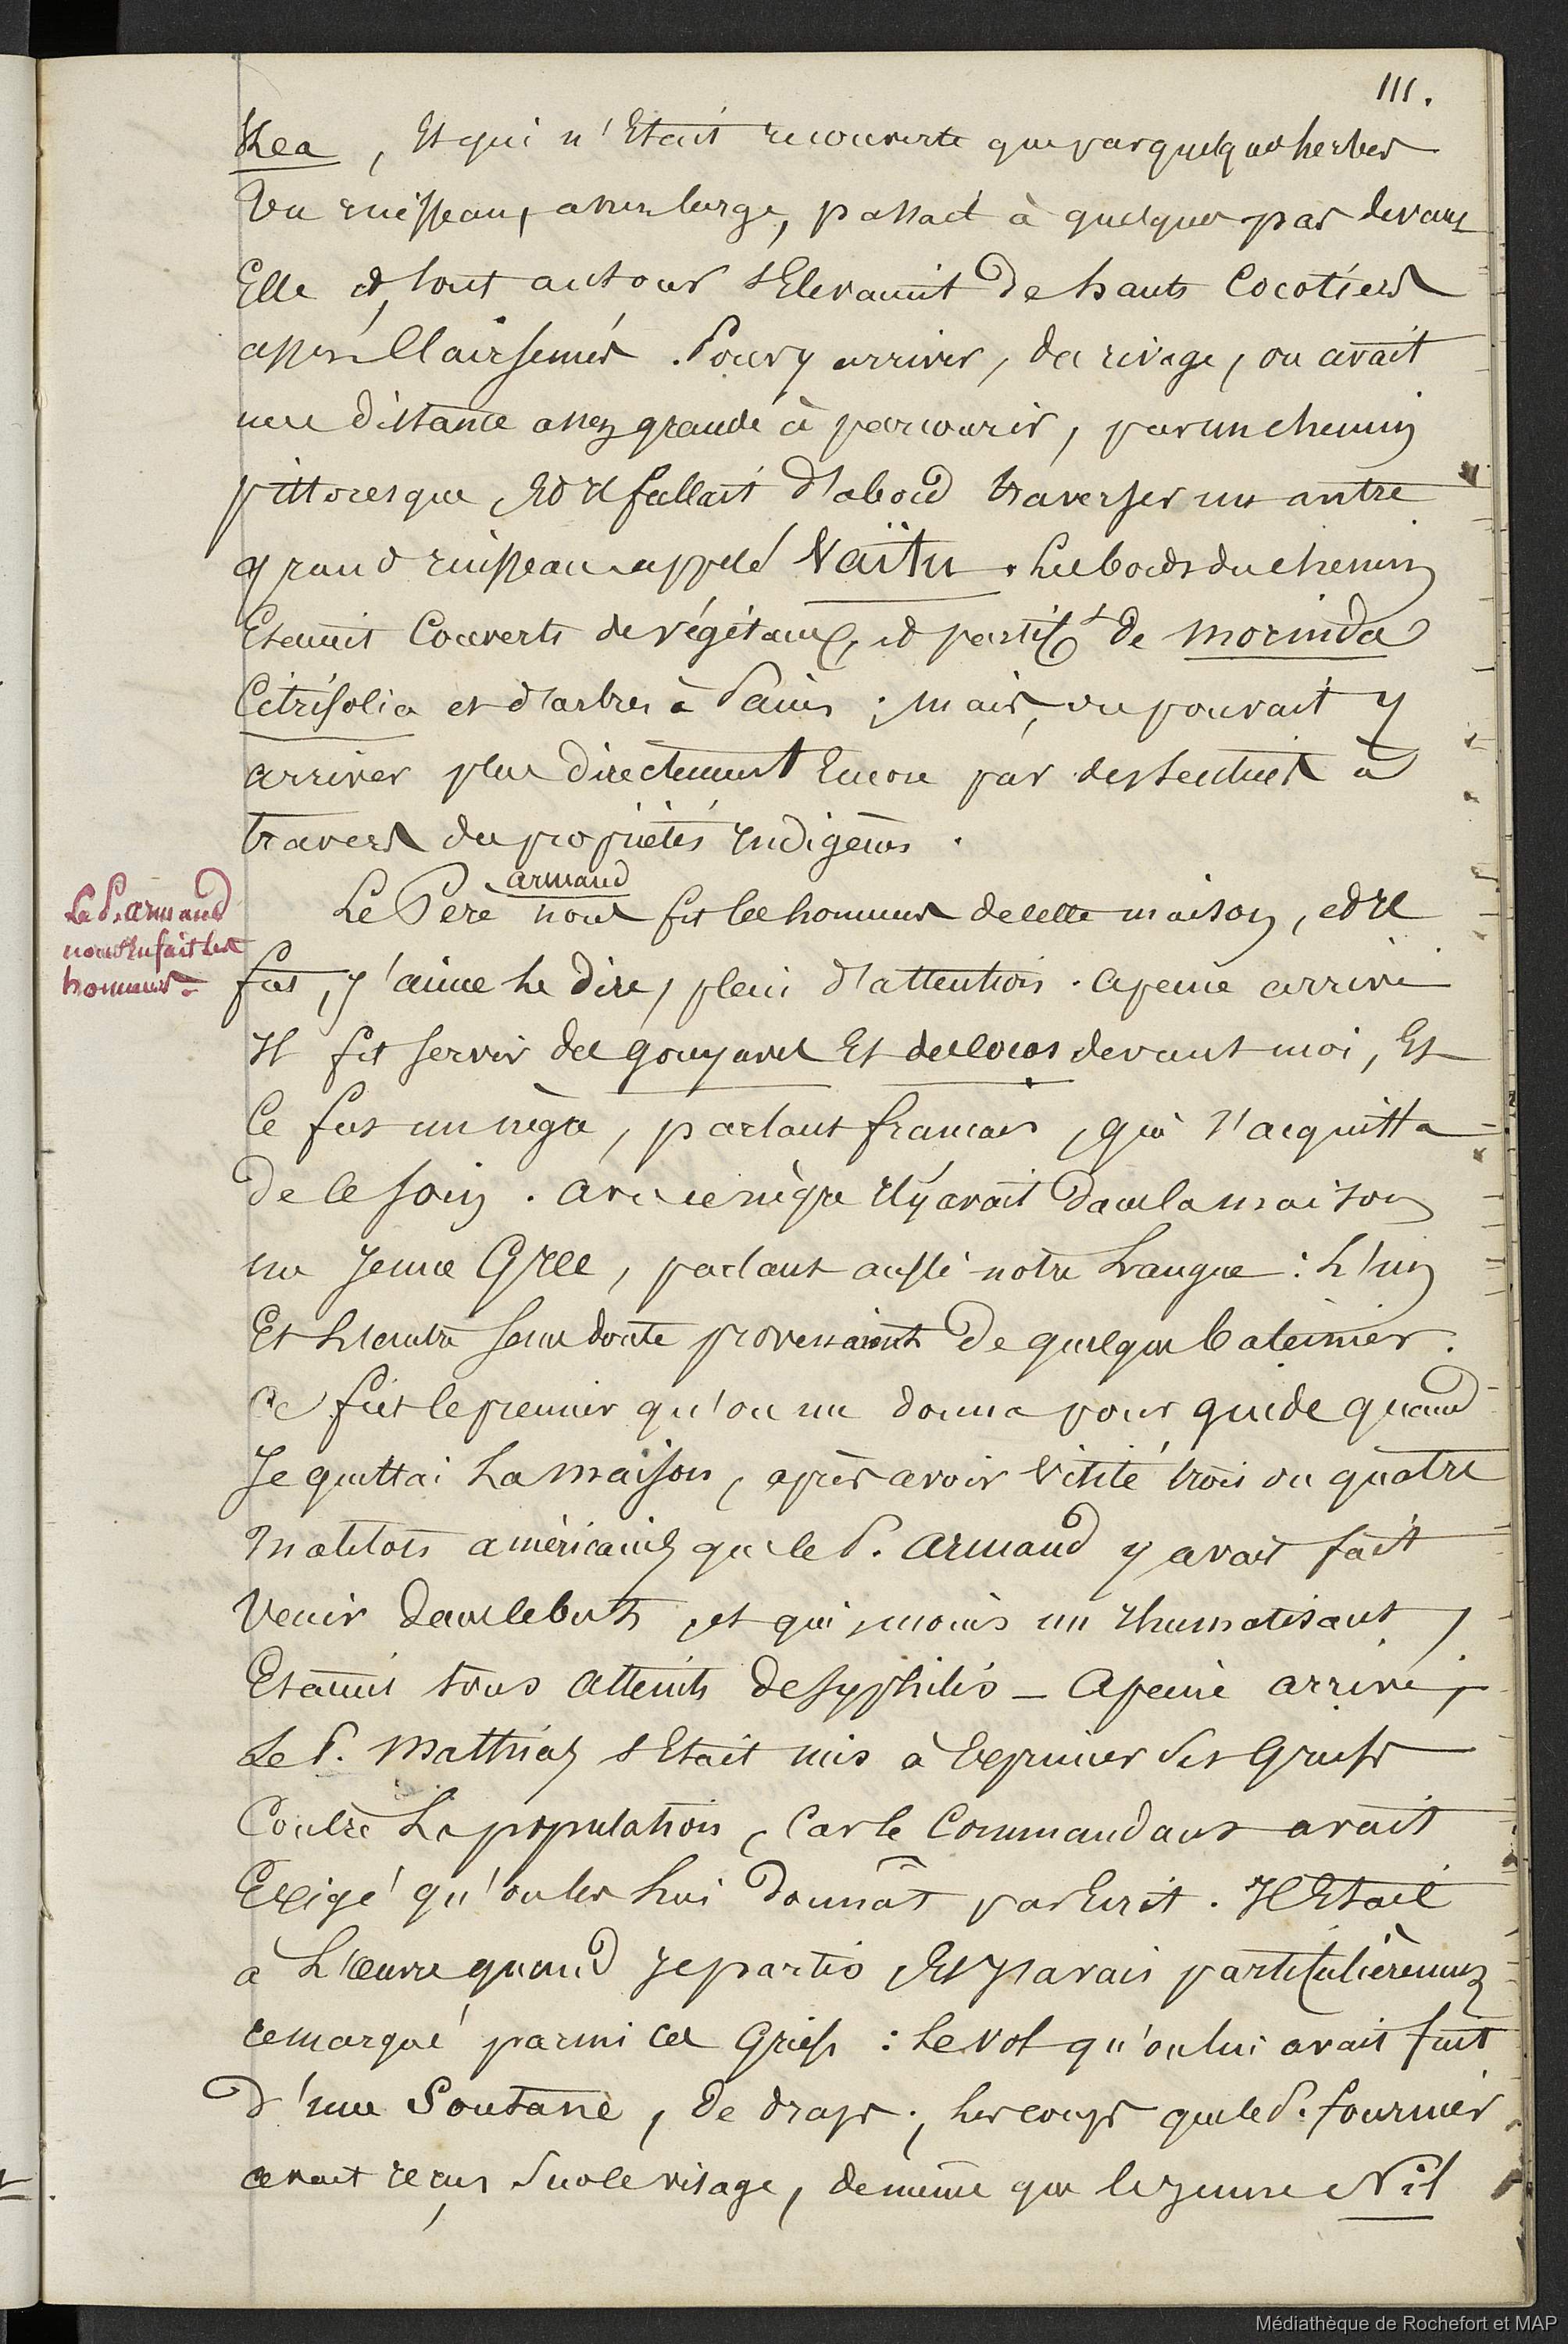 111.
Kea, Et qui n'Etait recouverte que par quelques herbes
Un ruisseau, assez large, passait à quelques pas devant
Elle et, tout autour s'Elevaient de hauts Cocotiers
assez Clairsemés. Pour y arriver, du rivage, on avait
une distance assez grande à parcourir, par un chemin
pittoresque Et il fallait d'abord traverser un autre
grand ruisseau appelé Vaïtu. Les bords du chemin
Etaient Couverts de végétaux, et partict de morinda
Citrifolia et d'arbres à Pains ; mais, on pouvait y
arriver plus directement Encore par des sentiers à
travers des propriétés indigènes.
Le P. armand
nous en fait les
honneurs.
Le Père armand nous fit les honneurs de cette maison, et il
fut, j'aime Le dire, plein d'attentions. Apeine arrivé
Il fit servir des gouyaves Et des cocos devant moi, Et
Ce fut un nègre, parlant francais, qui s'acquitta
De ce soin. Avec ce nègre il y avait Dans la maison
un Jeune Grec, parlant aussi notre Langue : L'un
Et L'autre sans doute provenaient De quelque baleinier.
Ce fut le premier qu'on me donna pour guide quand
Je quittai La maison, après avoir visité trois ou quatre
Matelots américains que le P. Armand y avait fait
Venir Dans le but, et qui, moins un rhumatisant,
Etaient tous atteints de syphilis _ Apeine arrivé,
Le P. Mathias s'Etait mis à Exprimer ses Griefs
Contre La population, Car le Commandant avait
Exigé qu'on les Lui Donnât par Ecrit. Il Etait
à L'œuvre quand Je partis Et J'avais particulièrement
remarqué parmi ces Griefs : Le vol qu'on lui avait fait
D'une Soutane, De draps ; Les coups que le P. fournier
avait reçus Sur le visage, de même que le jeune Nil
Médiathèque de Rochefort et MAP